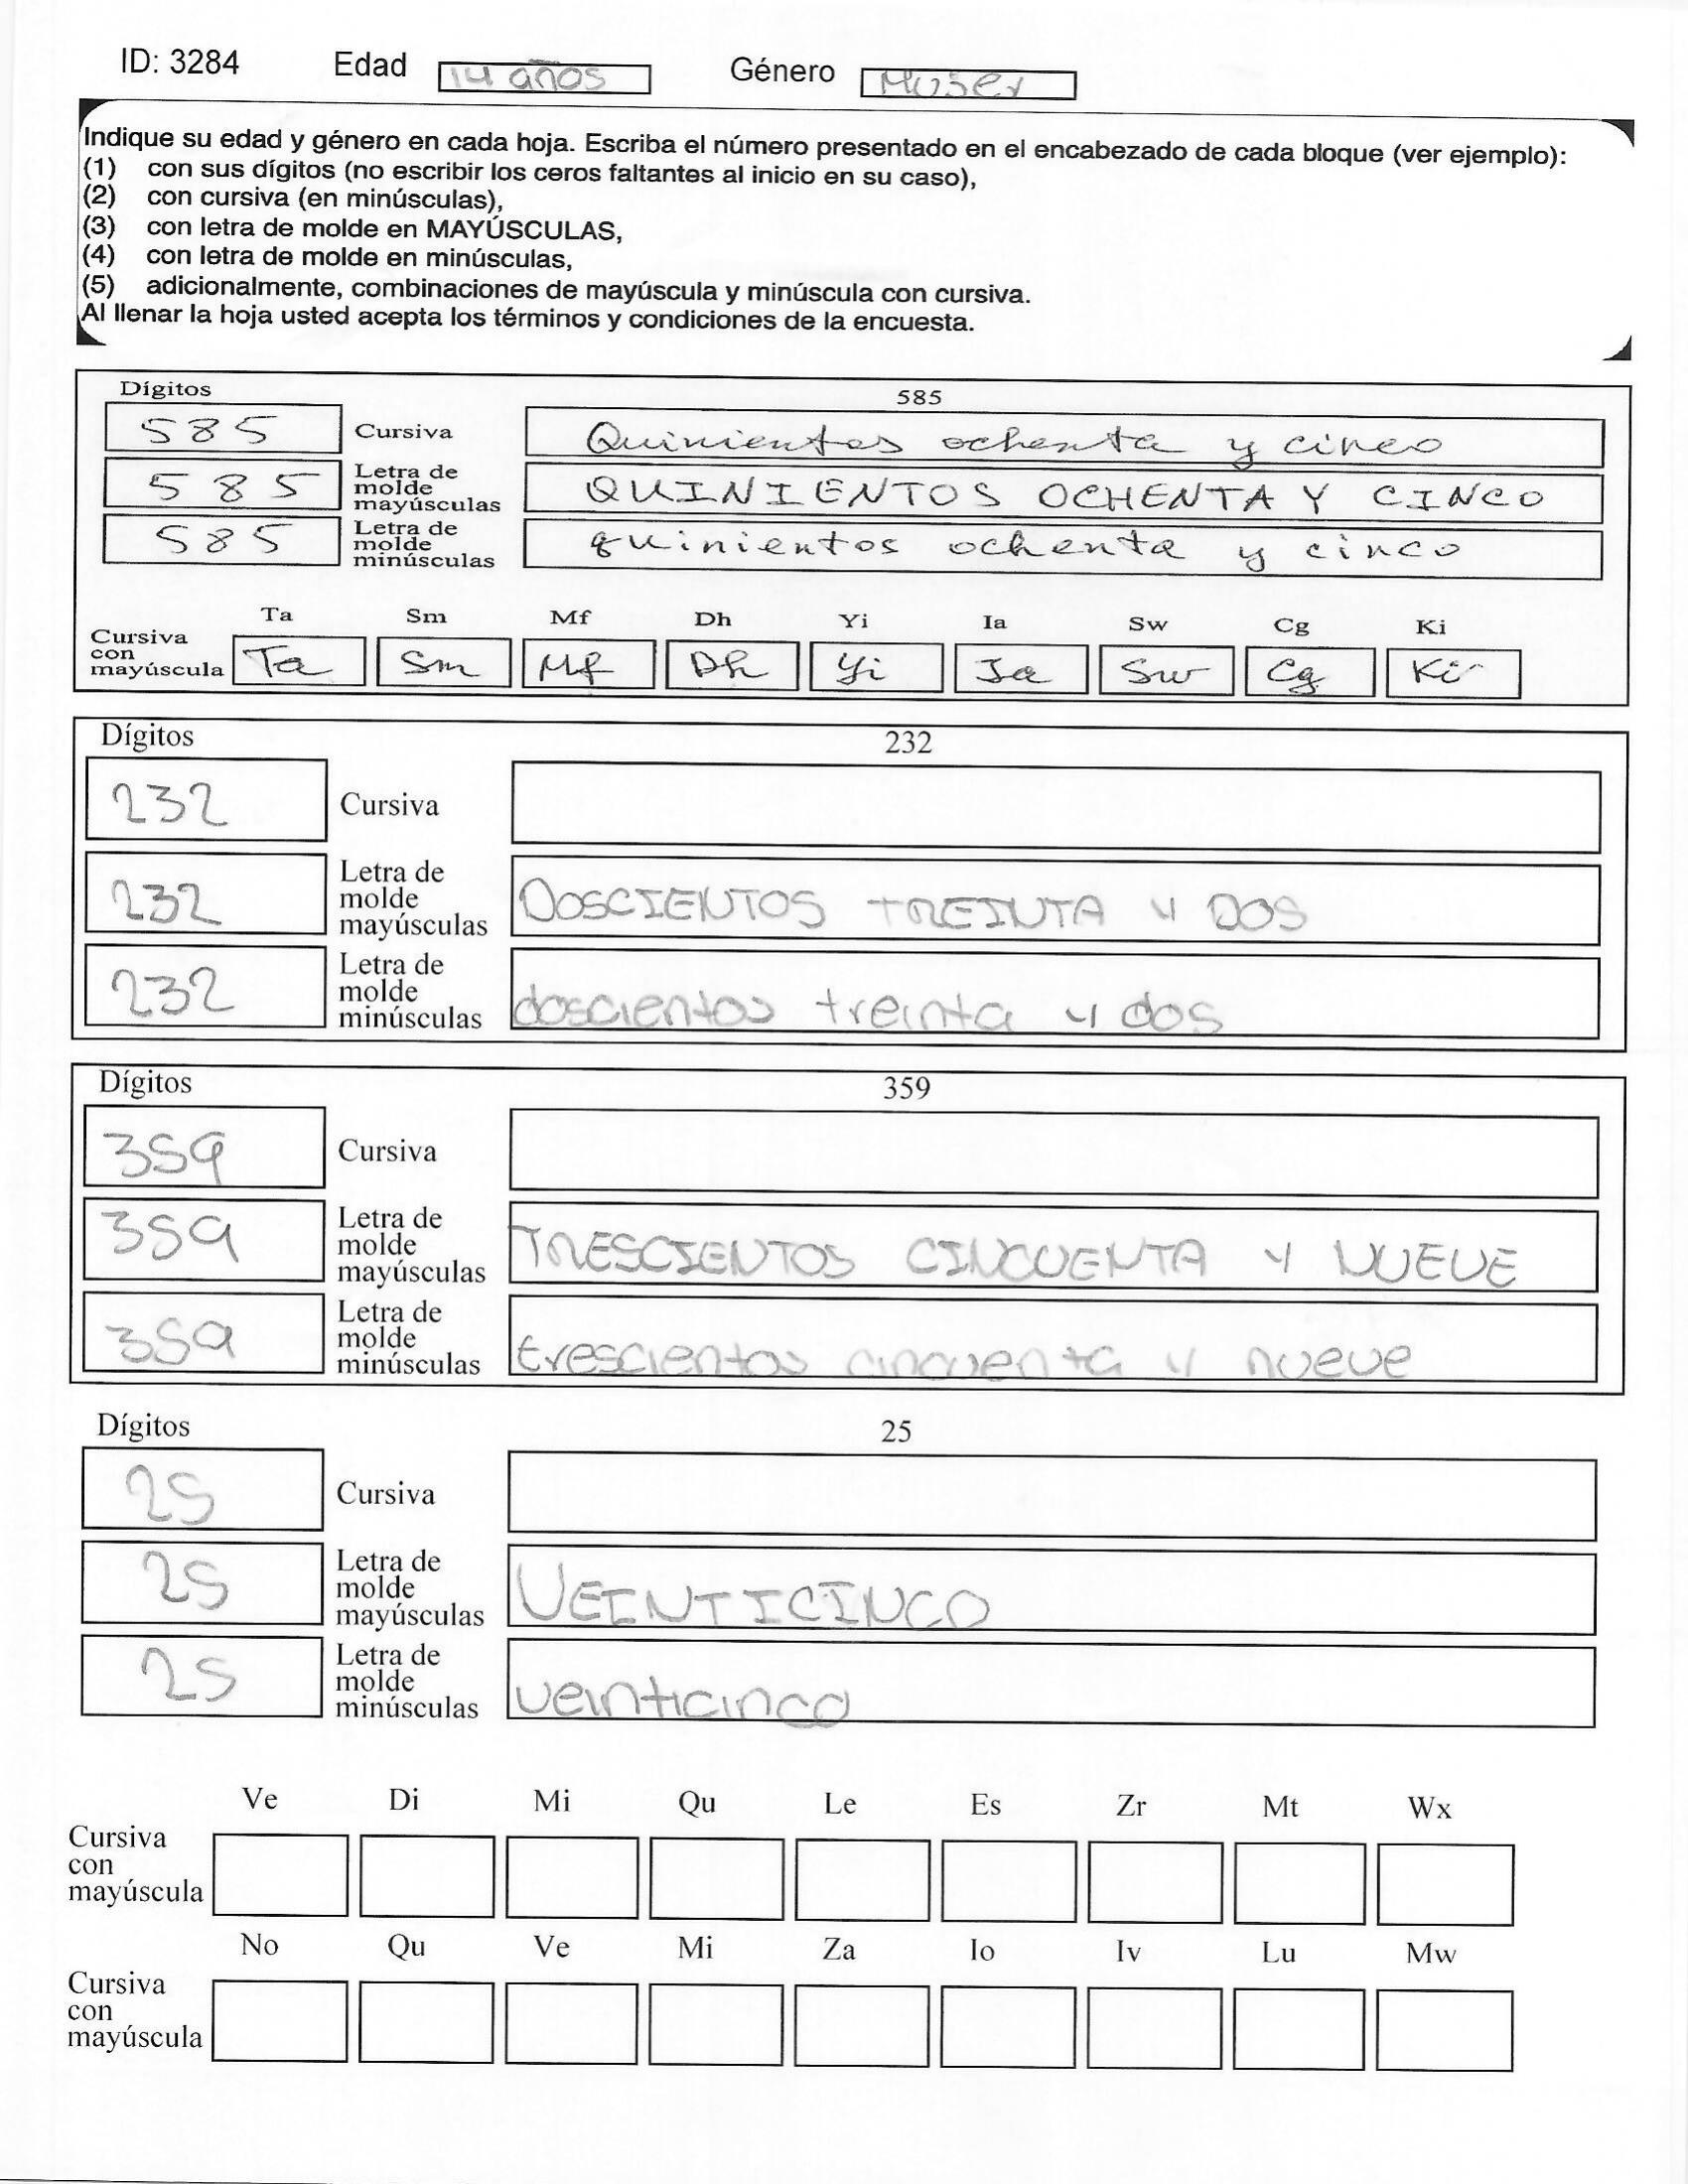 ID: 3284 Edad 14 años Género Mujer
Indique su edad y género en cada hoja. Escriba el número presentado en el encabezado de cada bloque (ver ejemplo):
(1) con sus dígitos (no escribir los ceros faltantes al inicio en su caso),
(2) con cursiva (en minúsculas),
(3) con letra de molde en MAYÚSCULAS,
(4) con letra de molde en minúsculas,
(5) adicionalmente, combinaciones de mayúscula y minúscula con cursiva.
Al llenar la hoja usted acepta los términos y condiciones de la encuesta.
Dígitos 585
585 Cursiva Quinientos ochenta y cinco
585 Letra de molde mayúsculas QUINIENTOS OCHENTA Y CINCO
585 Letra de molde minúsculas quinientos ochenta y cinco
Ta Sm Mf Dh Yi Ia Sw Cg Ki
Cursiva con mayúscula Ta Sm Mf Dh Yi Ia Sw Cg Ki
Dígitos 232
232 Cursiva
232 Letra de molde mayúsculas DOSCIENTOS tREINTA Y DOS
232 Letra de molde minúsculas doscientos treinta y dos
Dígitos 359
359 Cursiva
359 Letra de molde mayúsculas TRESCIENTOS CINCUENTA Y NUEVE
359 Letra de molde minúsculas trescientos cincuenta y nueve
Dígitos 25
25 Cursiva
25 Letra de molde mayúsculas VEINTICINCO
25 Letra de molde minúsculas veinticinco
Ve Di Mi Qu Le Es Zr Mt Wx
Cursiva con mayúscula
No Qu Ve Mi Za Io Iv Lu Mw
Cursiva con mayúscula